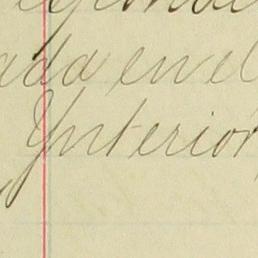 ada en el
Ynterior